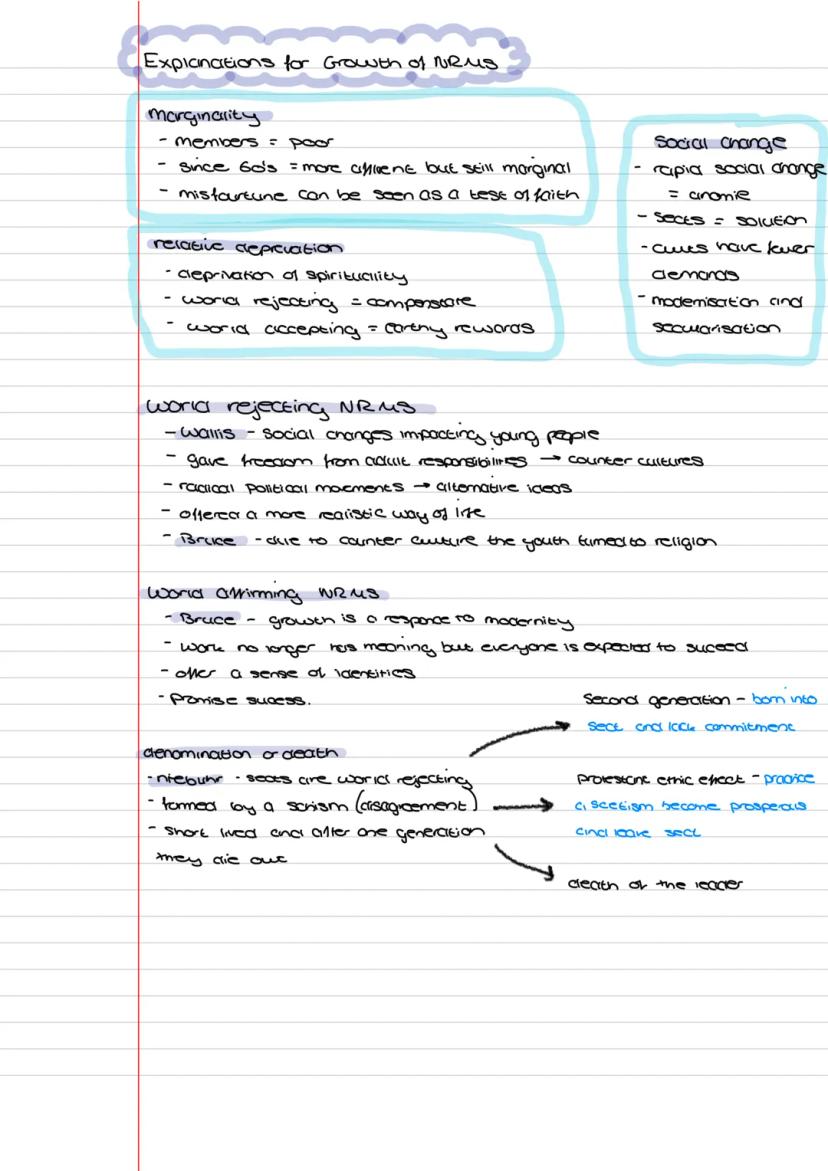 Explanations for Growth of NRMs
marginality
- members = poor
- since 60's = more affluent but still marginal
- misfourtune can be seen as a test of faith
social change
- rapid social change
= anomie
- sects = solution
- cults have fewer
demands
- modernisation and
secularisation
relative deprivation
- deprivation of spirituality
- world rejecting = compensate
- world accepting = earthly rewards
World rejecting NRMs
- Wallis - social changes impacting young people
- gave freedom from adult responsibilities → counter cultures
- radical political movements → alternative ideas
- offered a more realistic way of life
- Bruce - due to counter culture the youth turned to religion
World affirming NRMs
- Bruce - growth is a response to modernity
- work no longer has meaning but everyone is expected to suceed
- offer a sense of identities
- Promise sucess.
denomination or death
- niebuhr - sects are world rejecting
- formed by a schism (disagreement)
- short lived and after one generation
they die out
Second generation - born into
sect and lack commitment
protestant ethic effect - practice
asceticism become prosperous
and leave sect
death of the leader